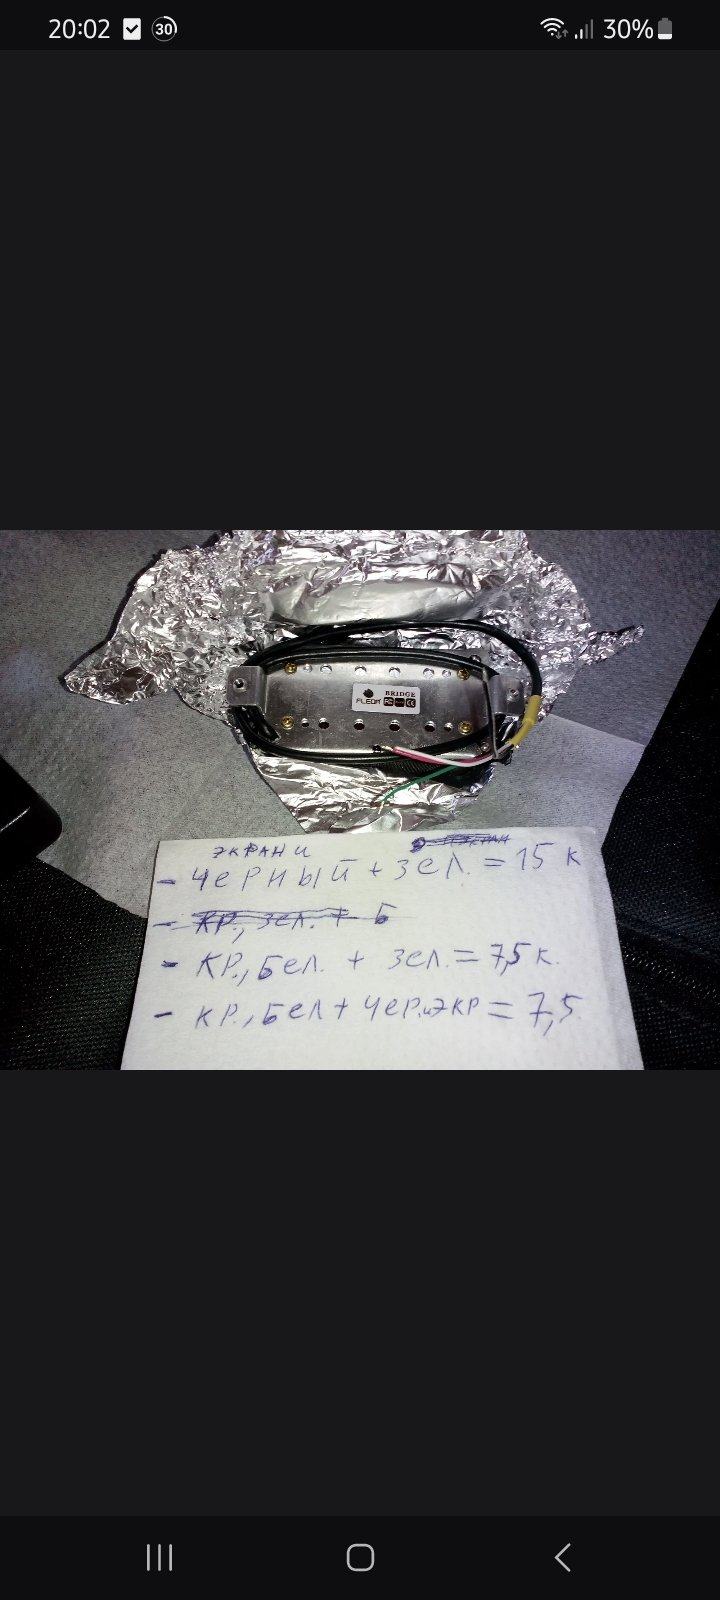 20:02 30 30%
BRIDGE
FLEOR FC CE
ЭКРАН И
- ЧЕРНЫЙ + ЗЕЛ. = 15 К
- КР., ЗЕЛ. + Б
- КР., БЕЛ. + ЗЕЛ. = 7,5 К.
- КР., БЕЛ + ЧЕР.ИЭКР = 7,5